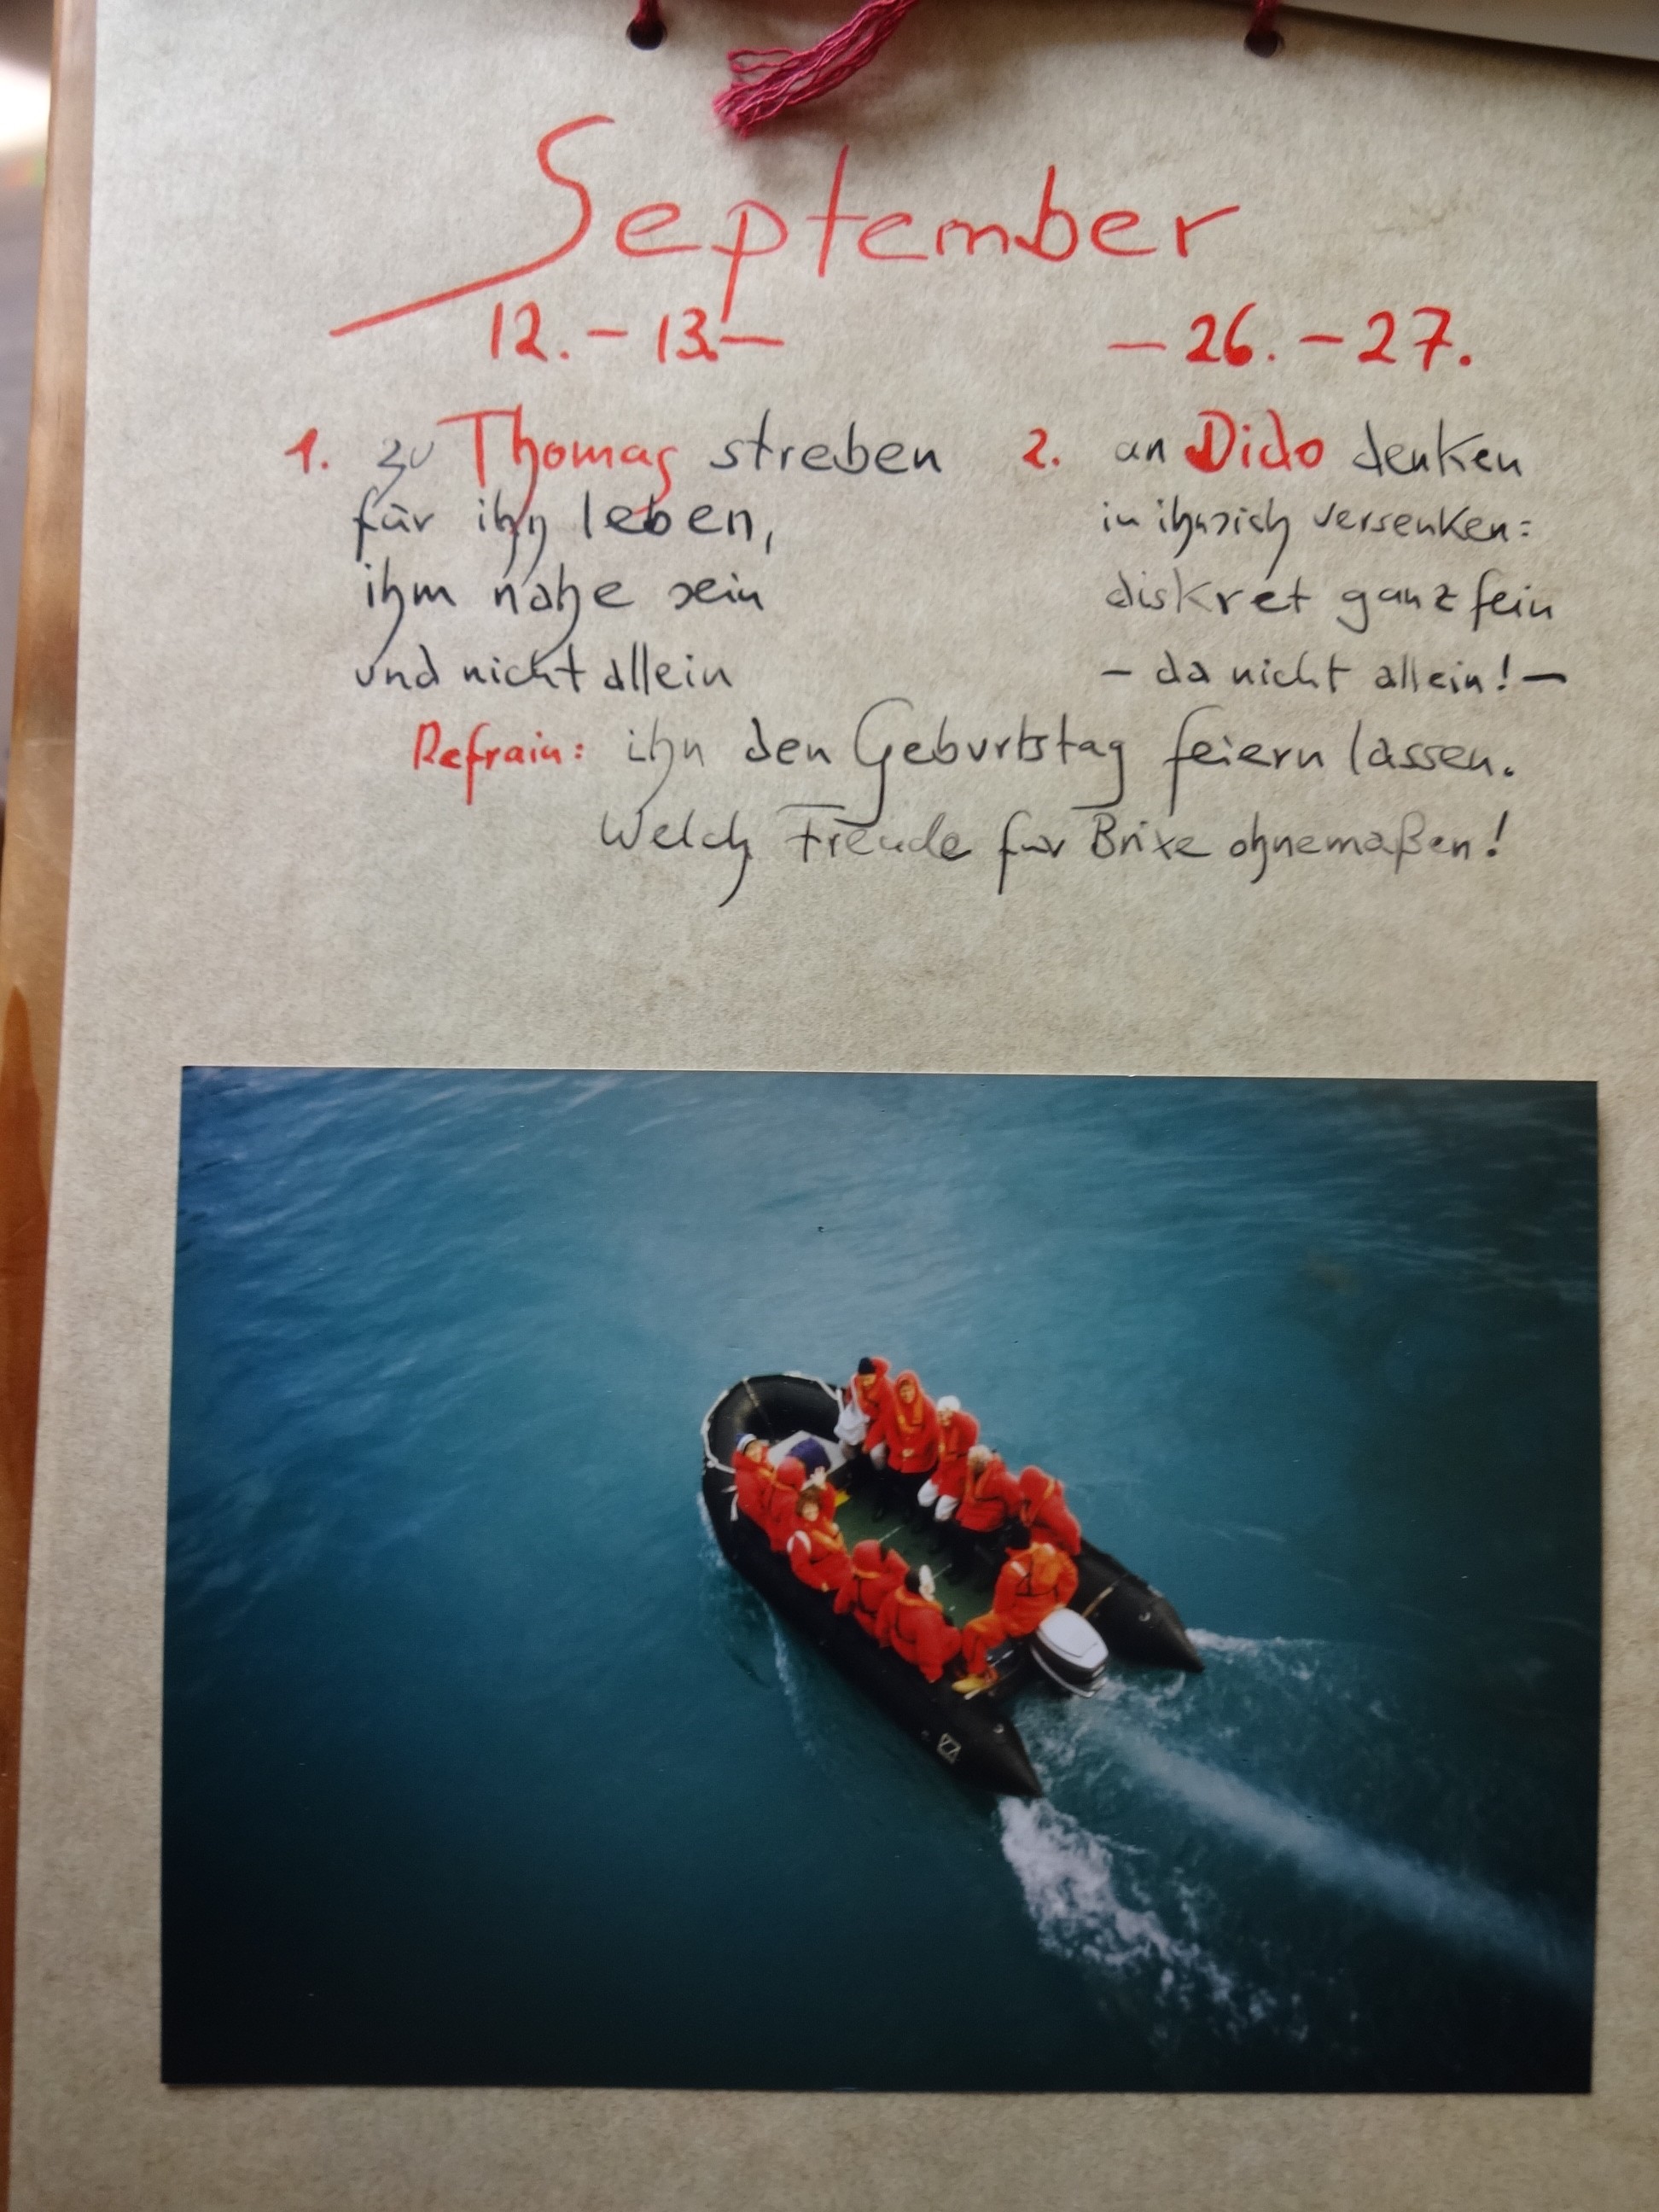 September
12. - 13. - - 26. - 27.
1. zu Thomas streben
für ihn leben,
ihm nahe sein
und nicht allein
2. an Dido denken
in ihn sich versenken:
diskret ganz fein
- da nicht allein! -
Refrain: ihn den Geburtstag feiern lassen.
Welch Freude für Brixe ohnemaßen!